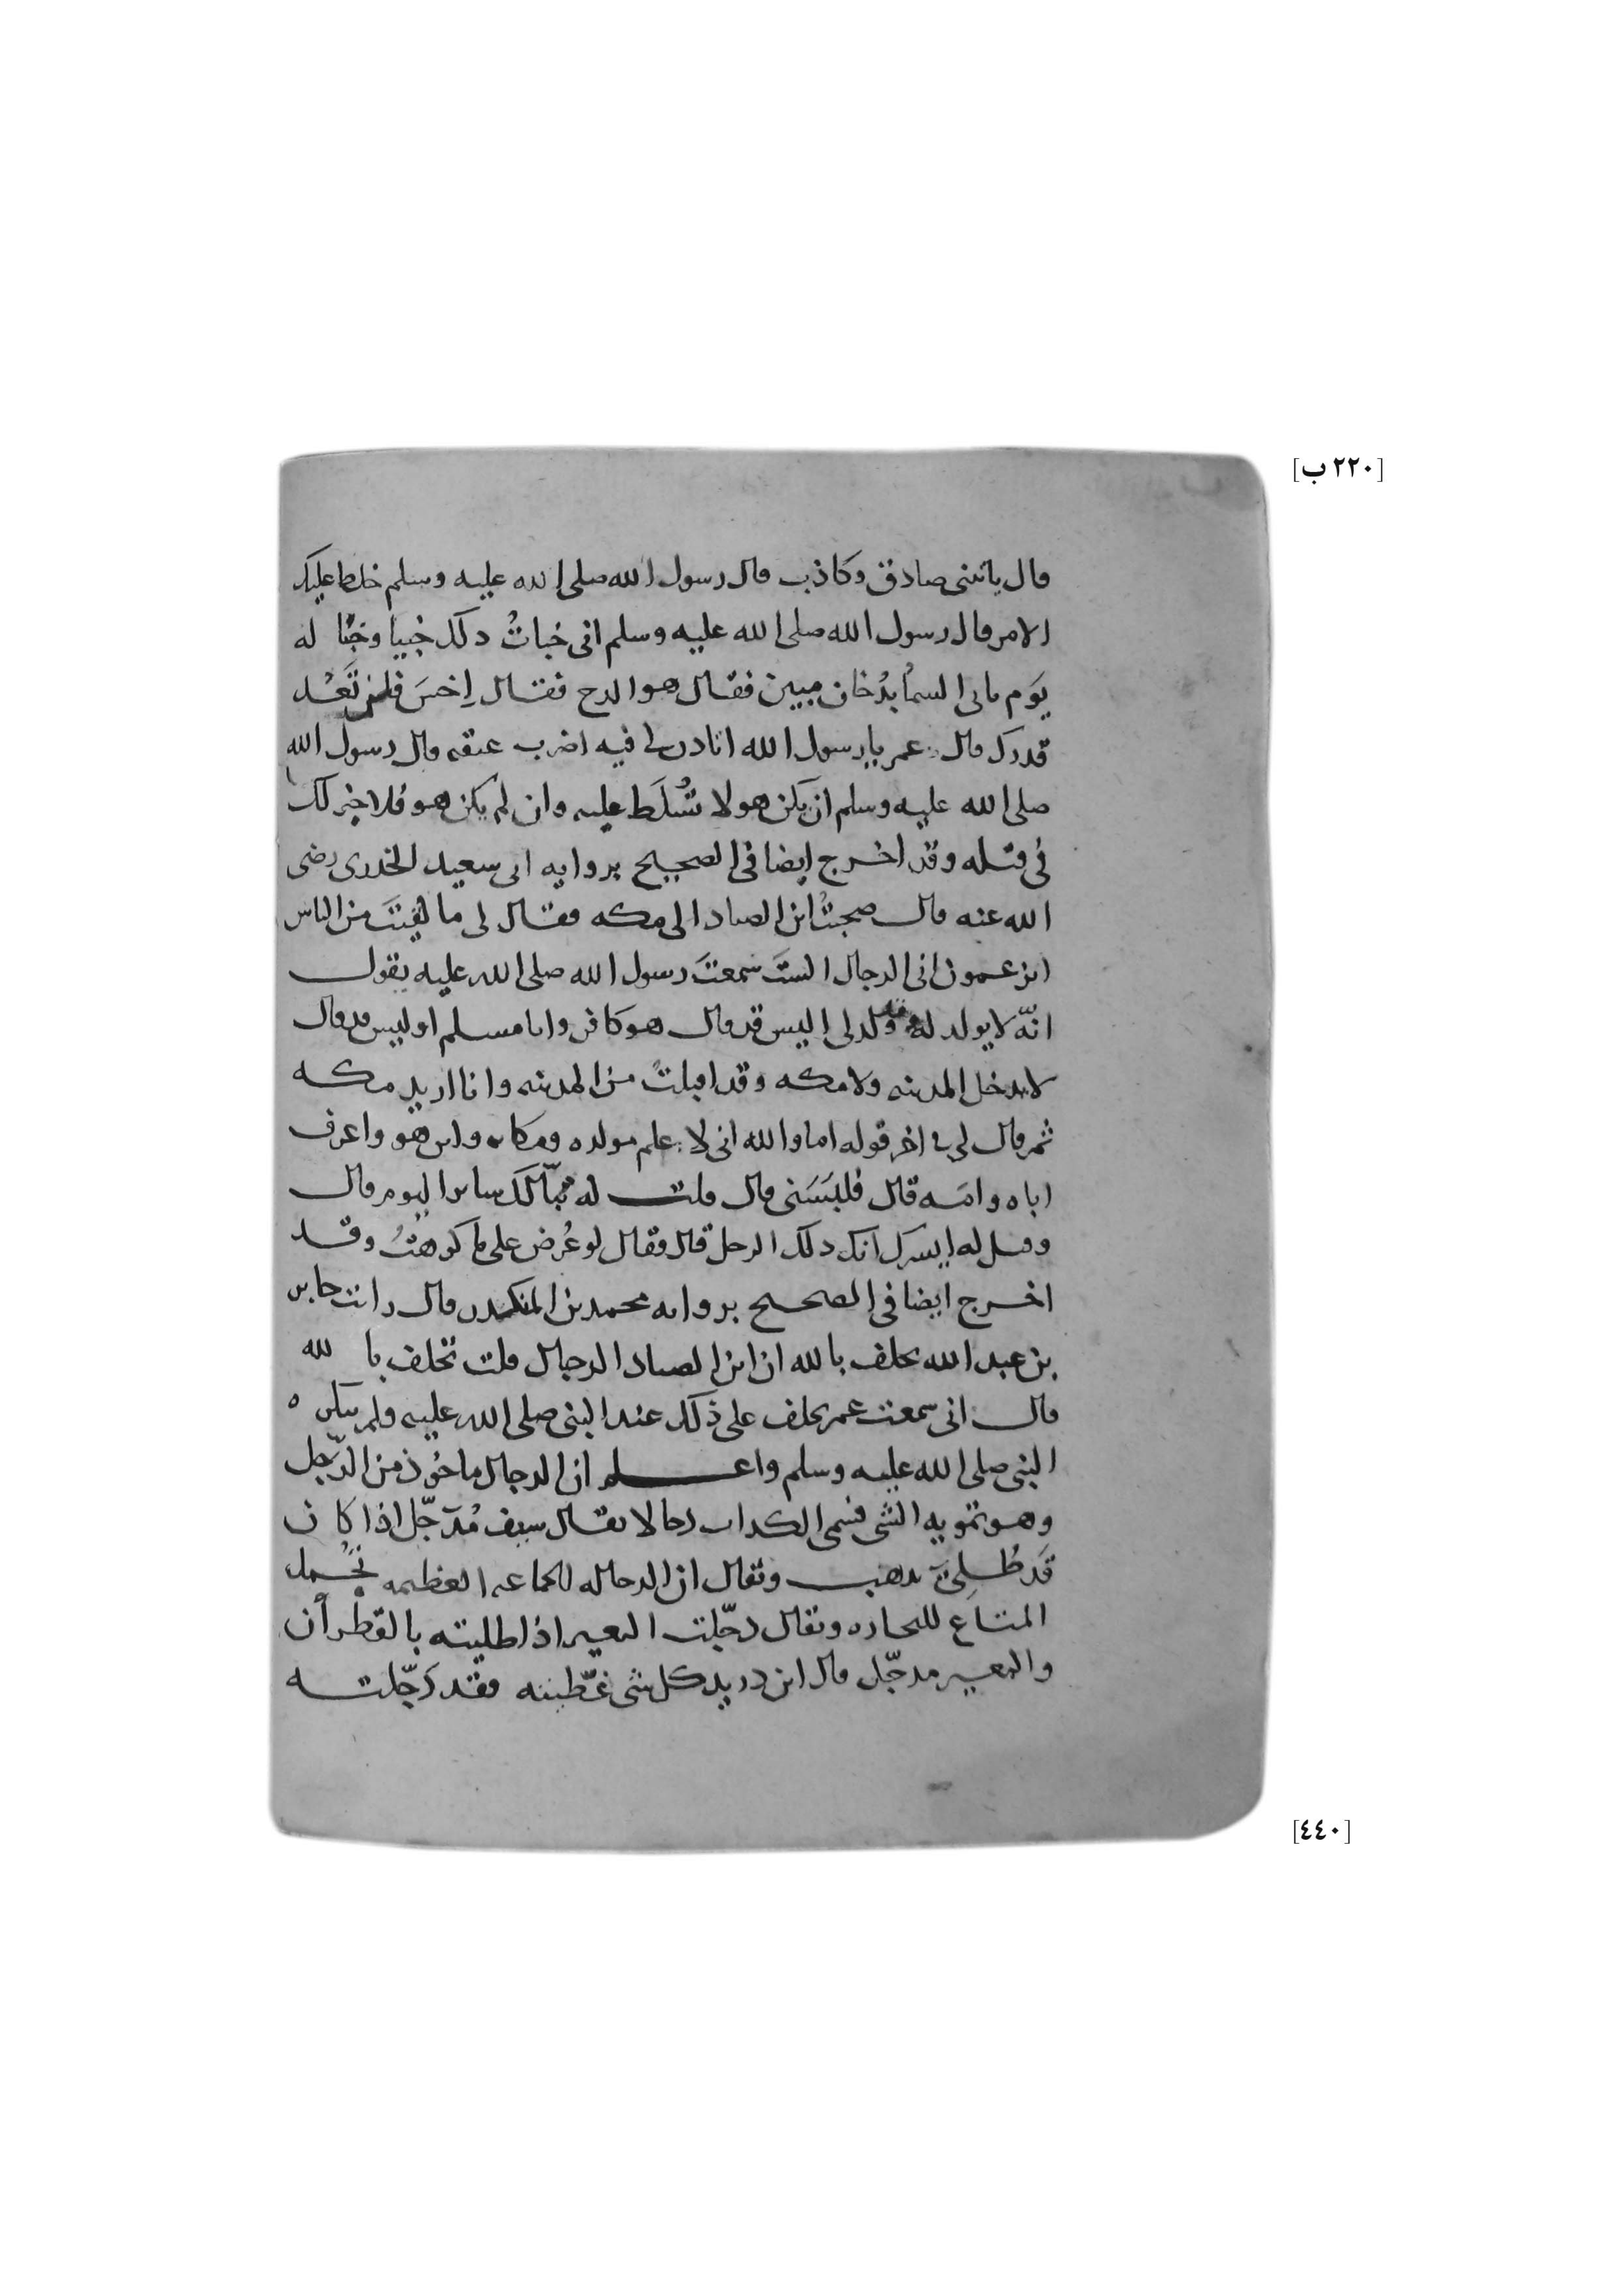 [٢٢٠ ب]
قال ياتينى صادق وكاذب قال رسول الله صلى الله عليه وسلم خلط عليك
الامر قال رسول الله صلى الله عليه وسلم انى خبات لك خبيا وخبا له
يوم تاتى السما بدخان مبين فقال هو الدخ فقال اخس فلن تعد
قدرك قال عمر يا رسول الله اتاذن لى فيه اضرب عنقه قال رسول الله
صلى الله عليه وسلم ان يكن هو لا تسلط عليه وان لم يكن هو فلا خير لك
فى قتله وقد اخرج ايضا فى الصحيح برواية ابى سعيد الخدرى رضى
الله عنه قال صحبت ابن الصياد الى مكه فقال لى ما لقيت من الناس
ايزعمون انى الدجال الست سمعت رسول الله صلى الله عليه يقول
انه لا يولد له وقد ولد لى اليس قد قال هو كافر وانا مسلم اوليس قد قال
لا يدخل المدينه ولا مكه وقد اقبلت من المدينه وانا اريد مكه
ثم قال لى فى اخر قوله اما والله انى لاعلم مولده ومكانه واين هو واعرف
اباه وامه قال فلبسنى قال قلت له تبا لك ساير اليوم قال
وقيل له ايسرك انك ذلك الرجل قال فقال لو عرض على ما كرهت وقد
اخرج ايضا فى الصحيح بروايه محمد بن المنكدر قال رايت جابر
بن عبد الله يحلف بالله ان ابن الصياد الدجال قلت تحلف بالله
قال انى سمعت عمر يحلف على ذلك عند النبى صلى الله عليه ولم ينكره
النبى صلى الله عليه وسلم واعلم ان الدجال ماخوذ من الدجل
وهو تمويه الشى فسمى الكذاب دجالا يقال سيف مدجل اذا كان
قد طلى بذهب ويقال ان الدجاله الجماعه العظيمه تحمل
المتاع للتجاره ويقال دجلت البعير اذا طليته بالقطران
والبعير مدجل قال ابن دريد كل شى غطيته فقد دجلته
[٤٤٠]